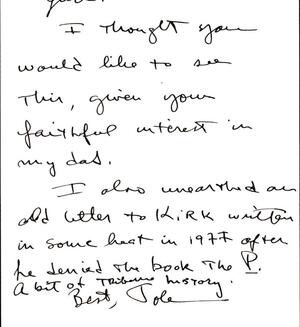 I thought you
would like to see
this, given your
faithful interest in
my dad.
I also unearthed an
old letter to KiRK written
in some heat in 1977 after
he denied the book the P.
A bit of Tribune history.
Best,